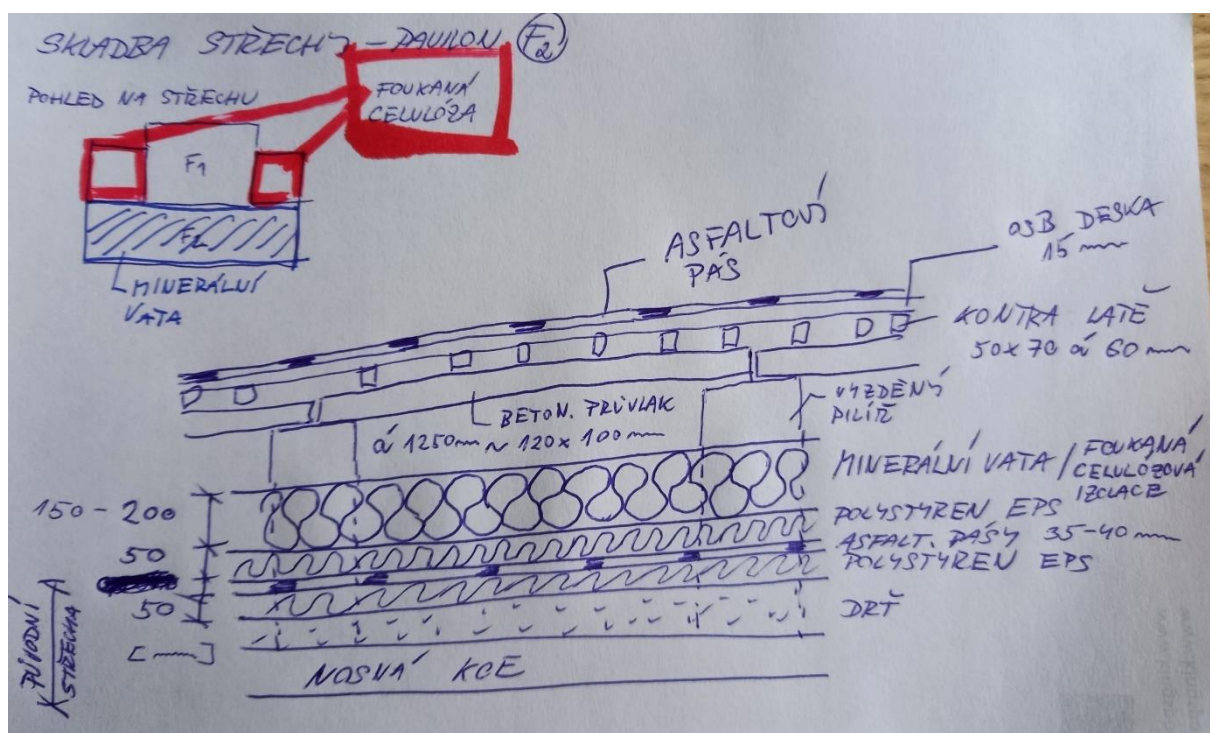 SKLADBA STŘECHY - PAVILON F2
POHLED NA STŘECHU
FOUKANÁ
CELULÓZA
F1
F2
MINERÁLNÍ
VATA
ASFALTOVÝ
PÁS
OSB DESKA
15 mm
KONTRA LATĚ
50x70 á 60 mm
BETON. PRŮVLAK
á 1250 mm ~ 120x100 mm
VYZDĚNÝ
PILÍŘ
MINERÁLNÍ VATA / FOUKANÁ
CELULÓZOVÁ
IZOLACE
150-200
POLYSTYREN EPS
50
ASFALT. PÁSY 35-40 mm
POLYSTYREN EPS
50
DRŤ
[mm]
NOSNÁ KCE
PŮVODNÍ
STŘECHA